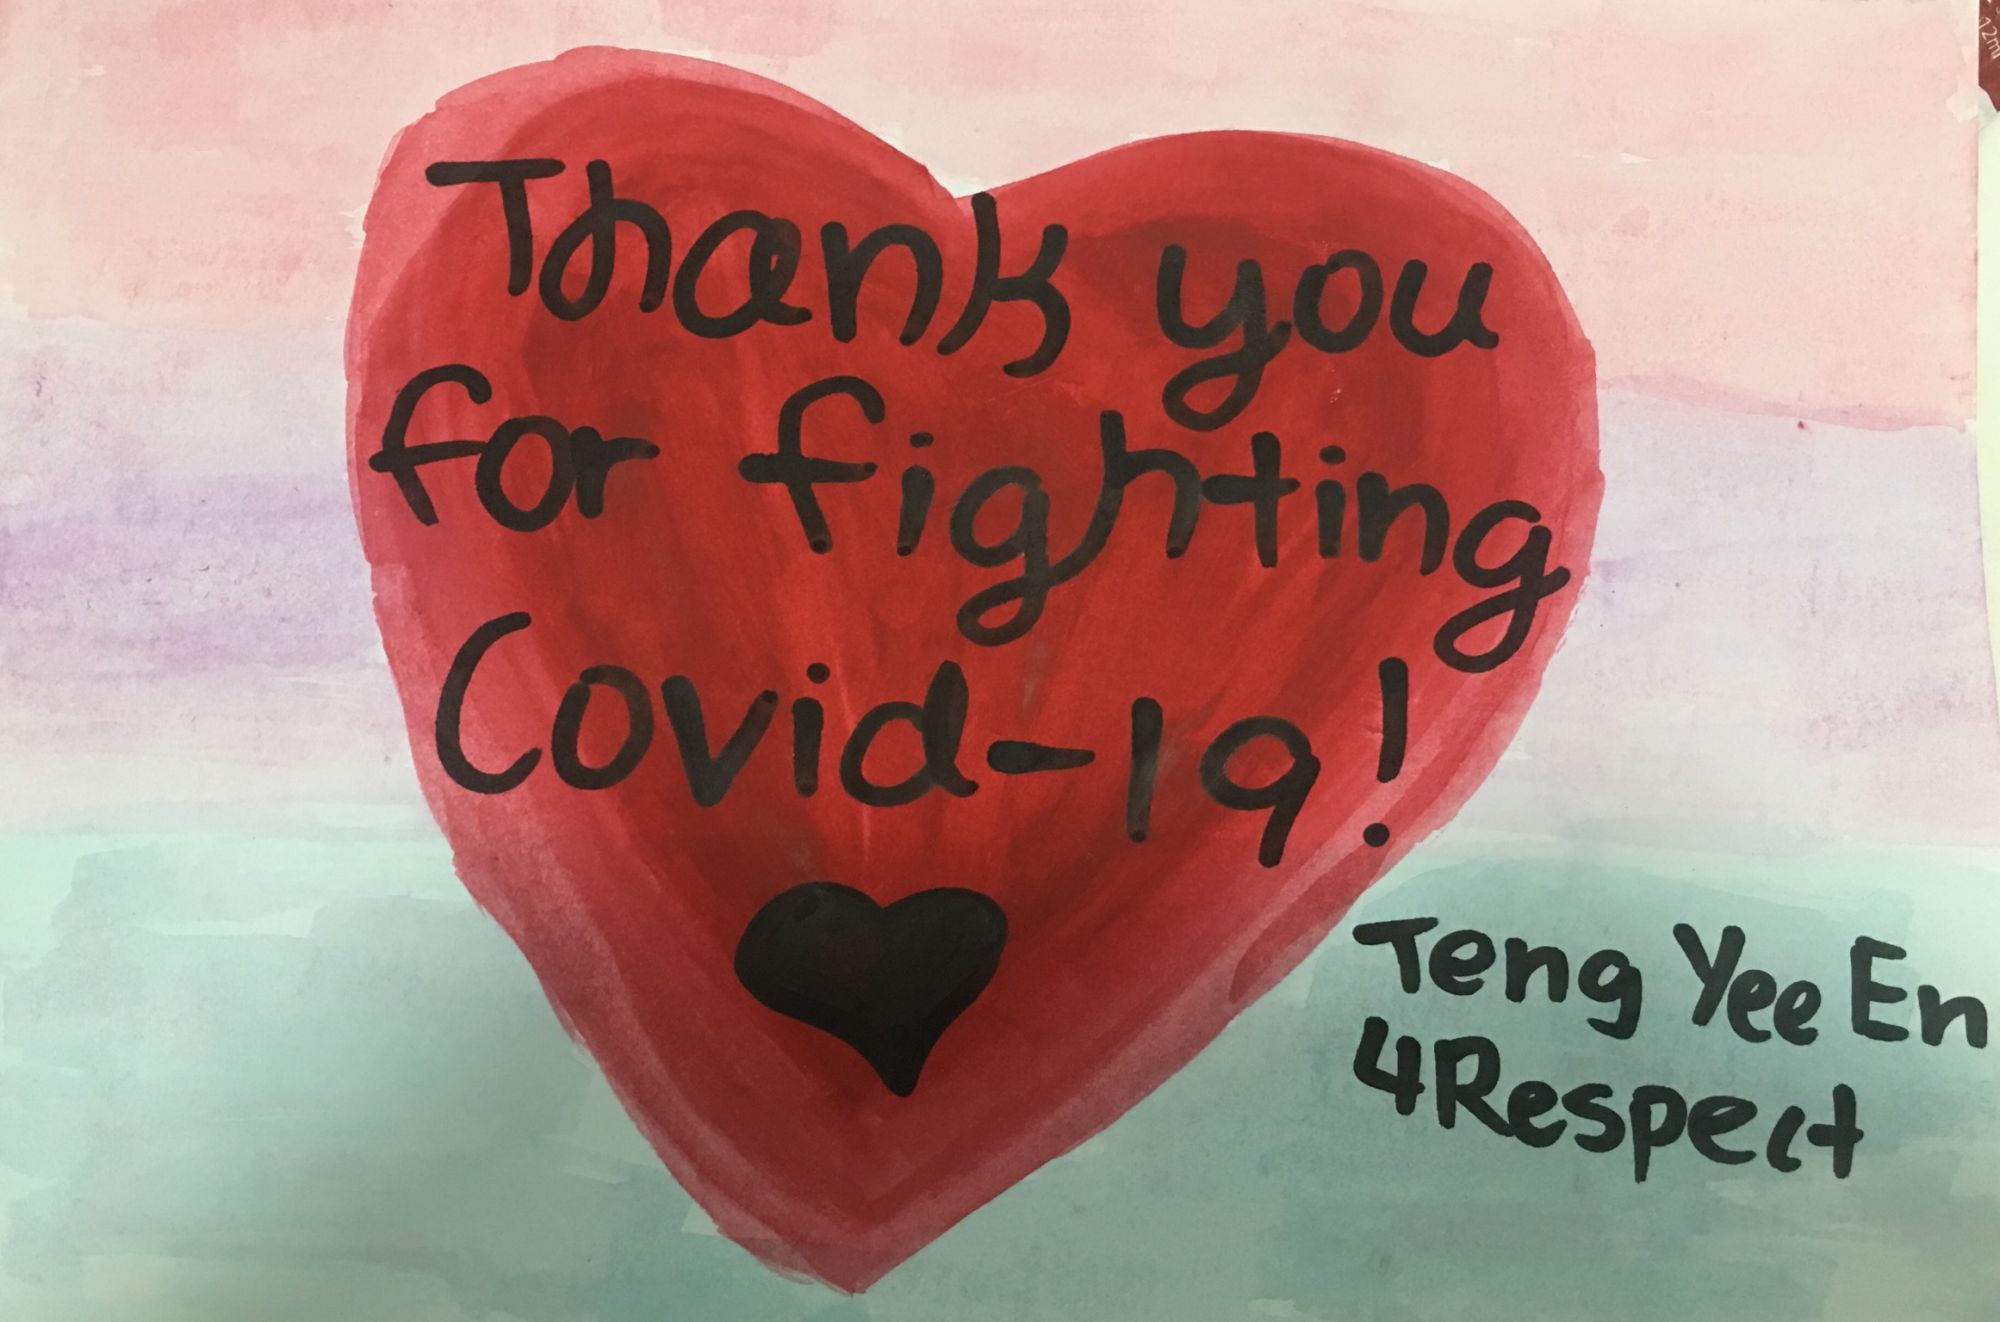 Thank you
for fighting
Covid-19!
Teng Yee En
4Respect